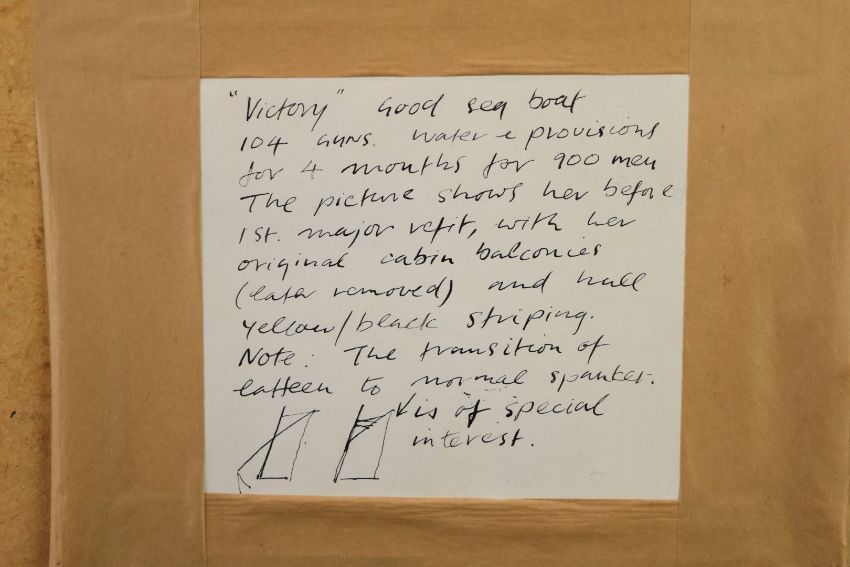 "Victory" Good sea boat
104 GUNS. Water & provisions
for 4 months for 900 men
The picture shows her before
1st. major refit, with her
original cabin balconies
(later removed) and hull
yellow/black striping.
Note: The transition of
latteen to normal spanker.
is of special
interest.